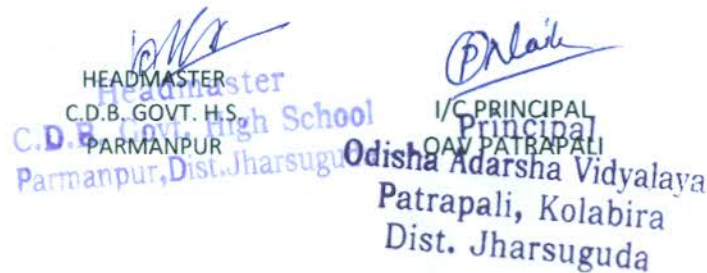 HEADMASTER
C.D.B. GOVT. H.S,
PARMANPUR
Headmaster
C.D.B. Govt. High School
Parmanpur,Dist.Jharsuguda
I/C PRINCIPAL
OAV PATRAPALI
Principal
Odisha Adarsha Vidyalaya
Patrapali, Kolabira
Dist. Jharsuguda